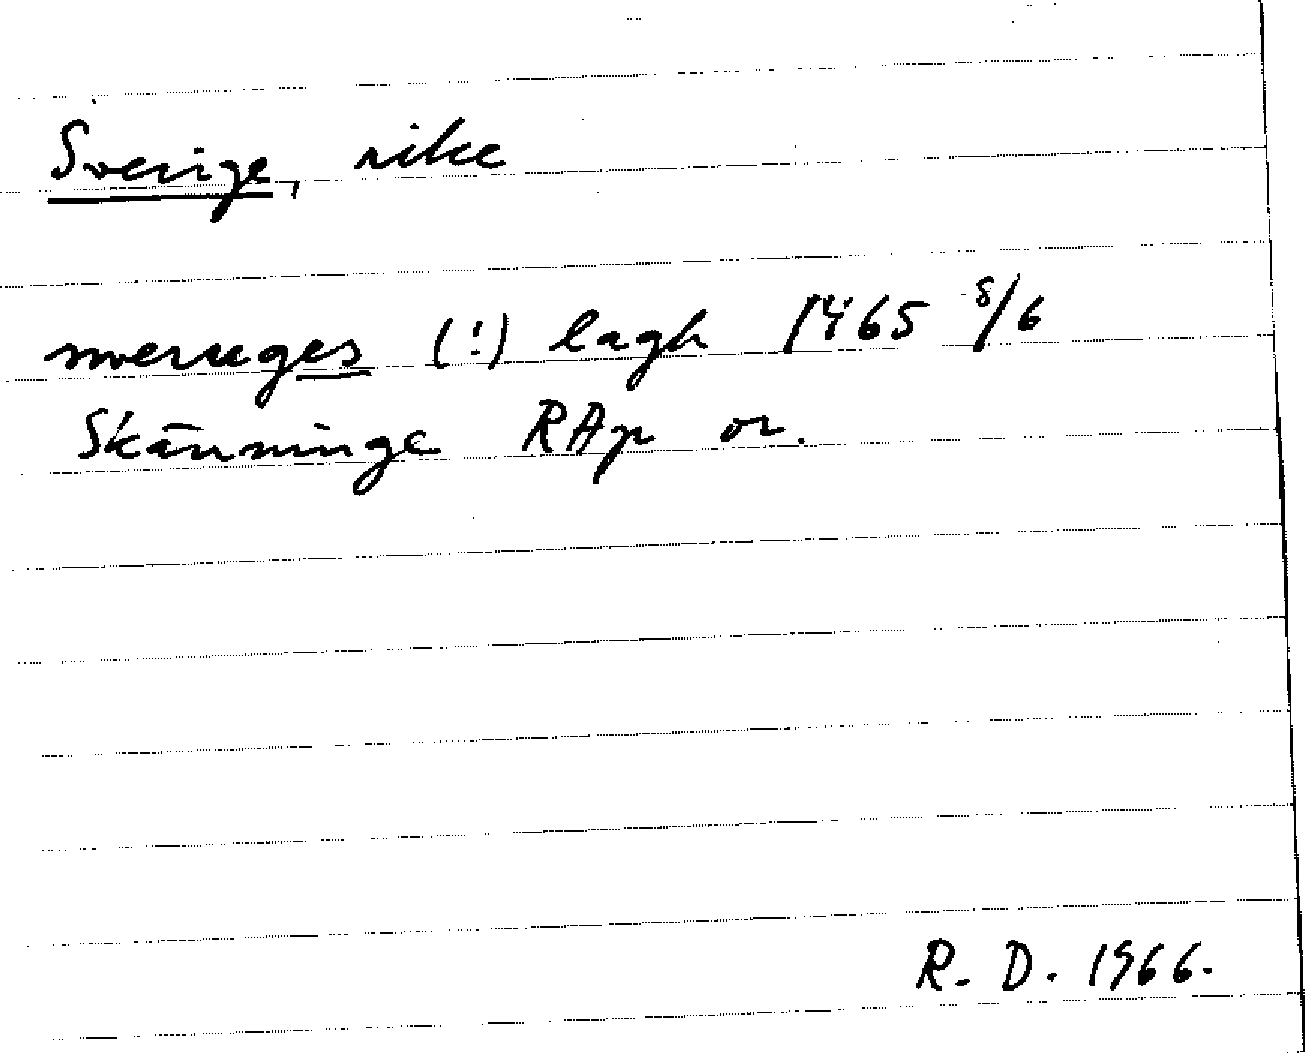 Sverige, rike
sweruges (!) lagh 1465 8/6
Skänninge RAp or.
R. D. 1966.